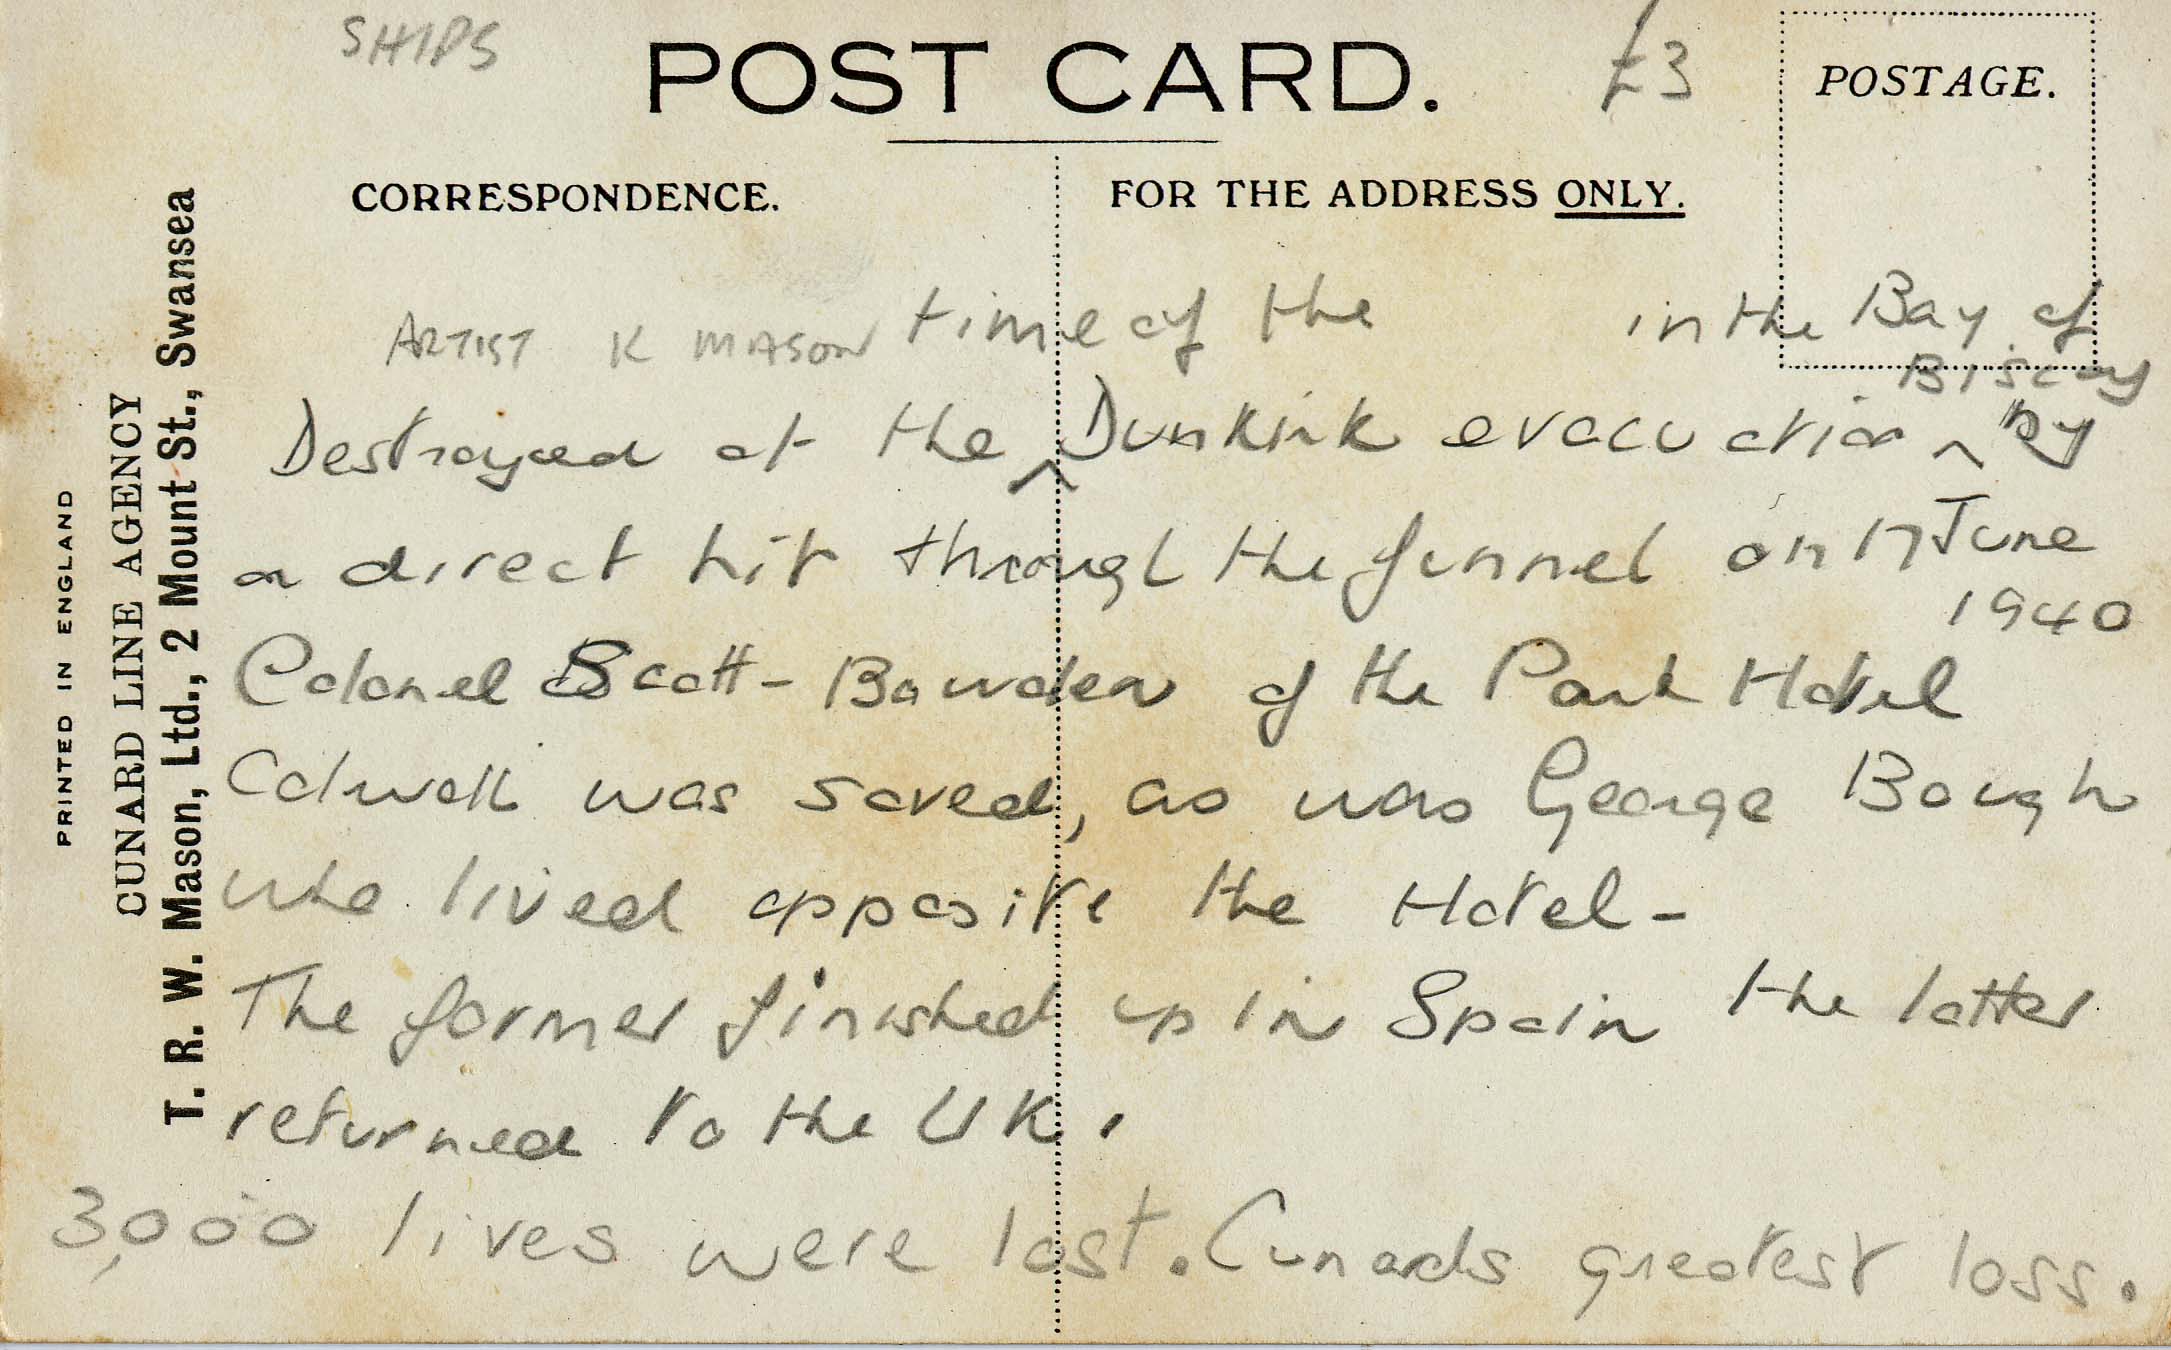 SHIPS
POST CARD.
£3
POSTAGE.
CORRESPONDENCE.
FOR THE ADDRESS ONLY.
PRINTED IN ENGLAND
CUNARD LINE AGENCY
T. R. W. Mason, Ltd., 2 Mount St., Swansea
ARTIST K MASON
time of the
in the Bay of
Biscay
Destroyed at the ^ Dunkirk evacuation ^ by
a direct hit through the funnel on 17 June
1940
Colonel Scott-Bowden of the Park Hotel
Colwall was saved, as was George Bough
who lived opposite the Hotel -
The former finished up in Spain the latter
returned to the UK.
3,000 lives were lost. Cunards greatest loss.